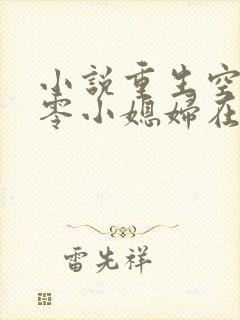 小說重生空
零小媳婦在
雷先祥